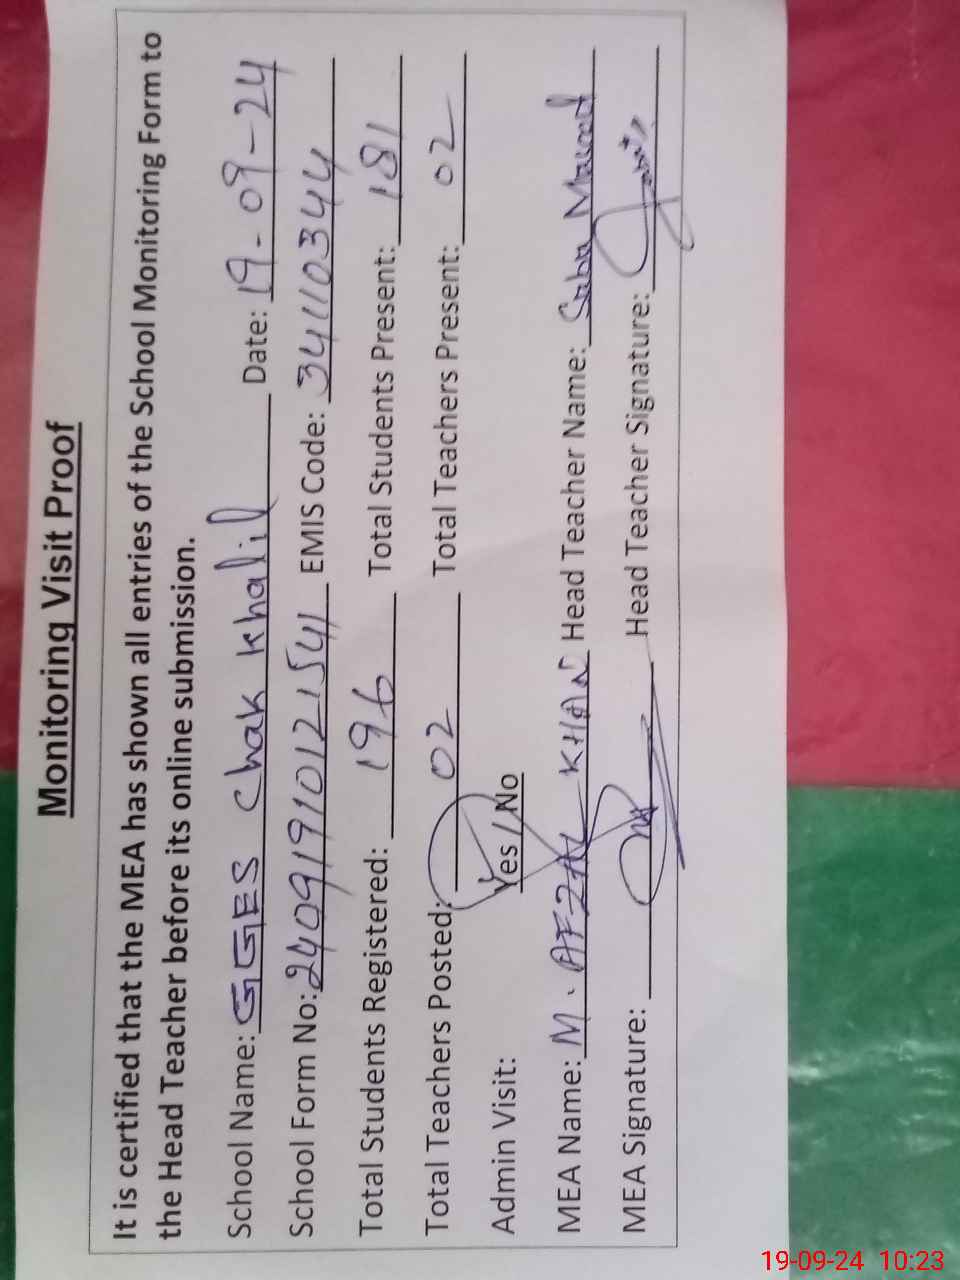 Monitoring Visit Proof
It is certified that the MEA has shown all entries of the School Monitoring Form to
the Head Teacher before its online submission.
School Name: GGES Chak Khalil Date: 19-09-24
School Form No: 24091910121541 EMIS Code: 34110344
Total Students Registered: 196 Total Students Present: 181
Total Teachers Posted: 02 Total Teachers Present: 02
Admin Visit: Yes / No
MEA Name: M. AFZAL KHAN Head Teacher Name: Saba
MEA Signature: Head Teacher Signature:
19-09-24 10:23